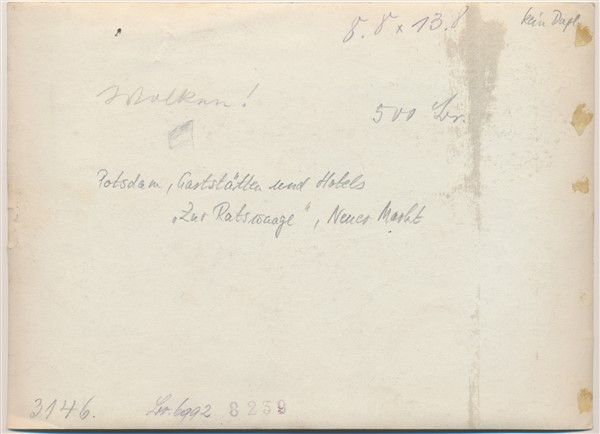 8.8 x 13.8
kein Dupl.
Wolken!
500 Lr.
Potsdam, Gaststätten und Hotels
"Zur Ratswaage", Neuer Markt
3146.
Lr. 6992 8239